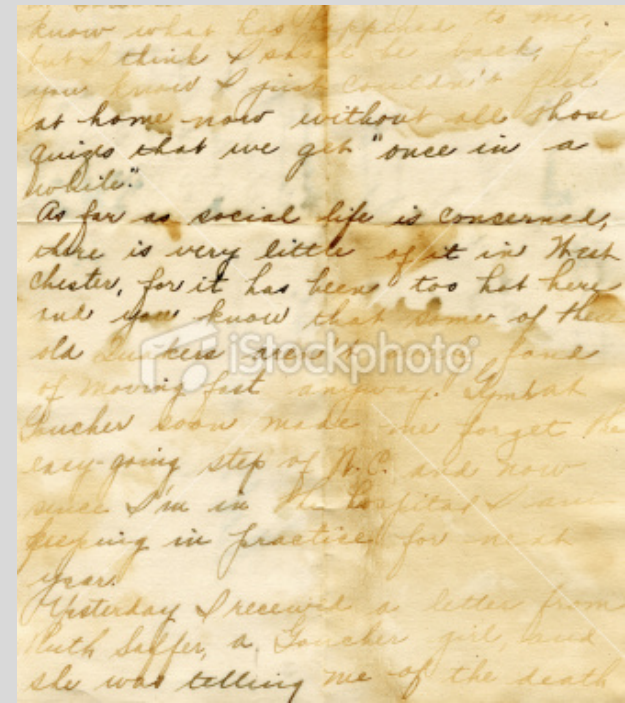 know what has happened to me,
but I think I shall be back, for
you know I just couldn't live
at home now without all those
quizes that we get "once in a
while."
As far as social life is concerned,
there is very little of it in West
Chester, for it has been too hot here
and you know that some of these
old Quakers aren't very fond
of moving fast anyway. Gym at
Goucher soon made me forget the
easy-going step of W.C. and now
since I'm in the hospital I am
keeping in practice for next
year.
Yesterday I received a letter from
Ruth Saffer, a Goucher girl, and
she was telling me of the death
iStockphoto